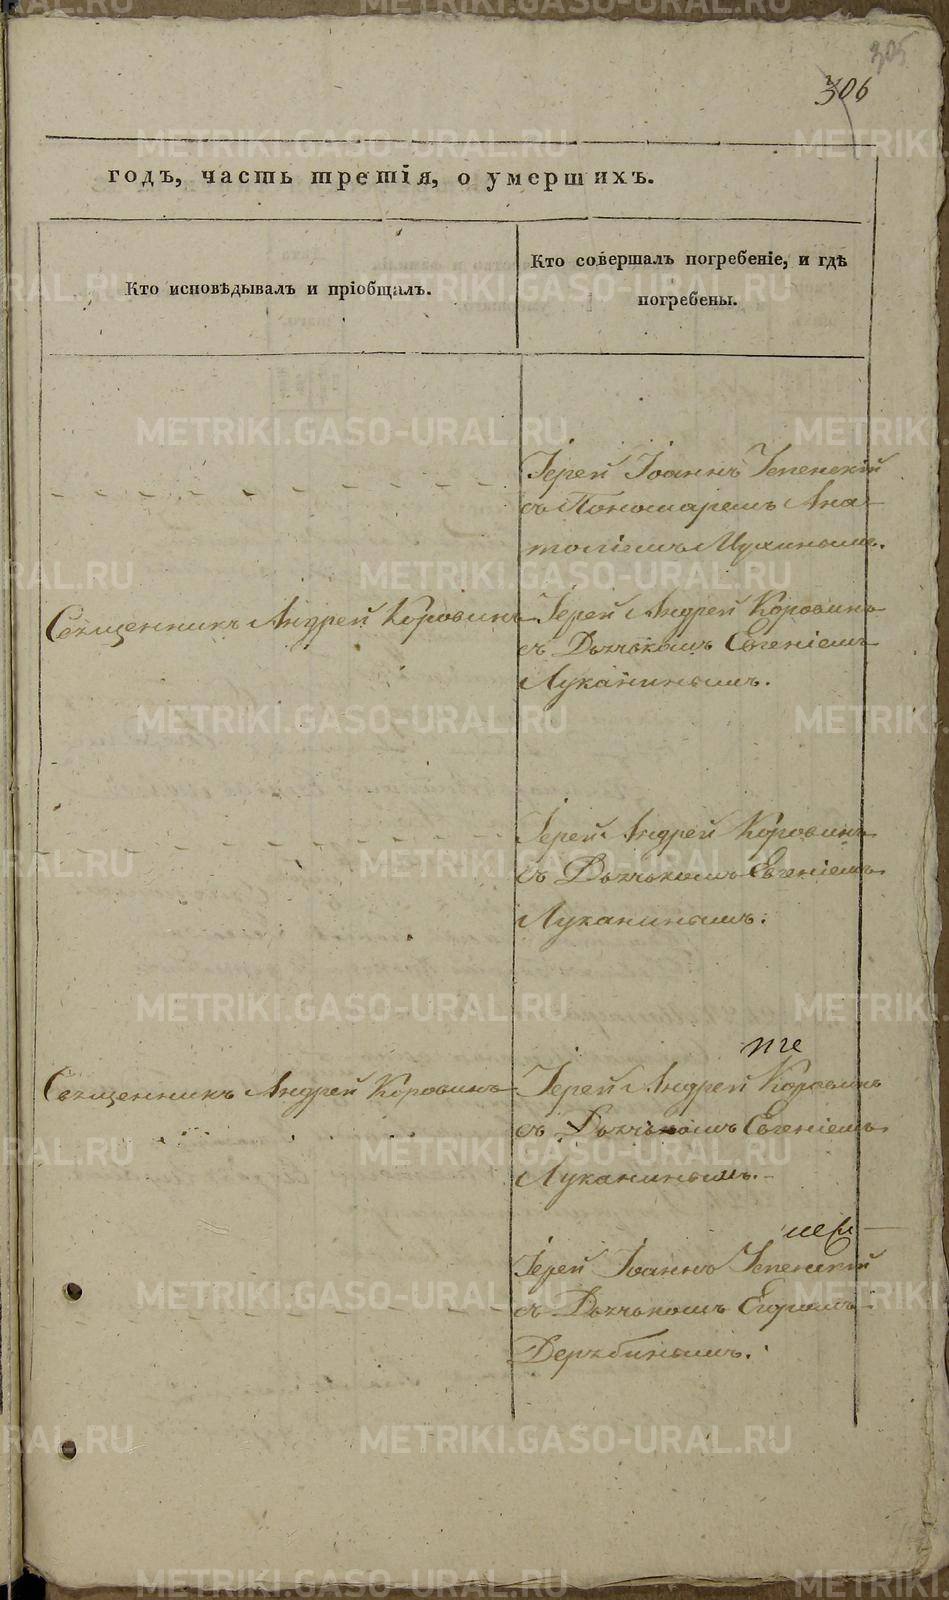 305
306
годъ, часть третія, о умершихъ.
Кто исповѣдывалъ и пріобщалъ.
Кто совершалъ погребеніе, и гдѣ
погребены.
Іерей Іоаннъ Успенскій
съ Пономаремъ Ана-
толіемъ Мухинымъ.
Священникъ Андрей Коровинъ
Іерей Андрей Коровинъ
съ Дьячькомъ Евгеніемъ
Луканинымъ.
Іерей Андрей Коровинъ
съ Дьячькомъ Евгеніемъ
Луканинымъ.
Священникъ Андрей Коровинъ
Іерей Андрей Коровинъ
съ Дьячькомъ Евгеніемъ
Луканинымъ.
Іерей Іоаннъ Успенскій
съ Дьячькомъ Егоромъ
Дерябинымъ.
METRIKI.GASO-URAL.RU